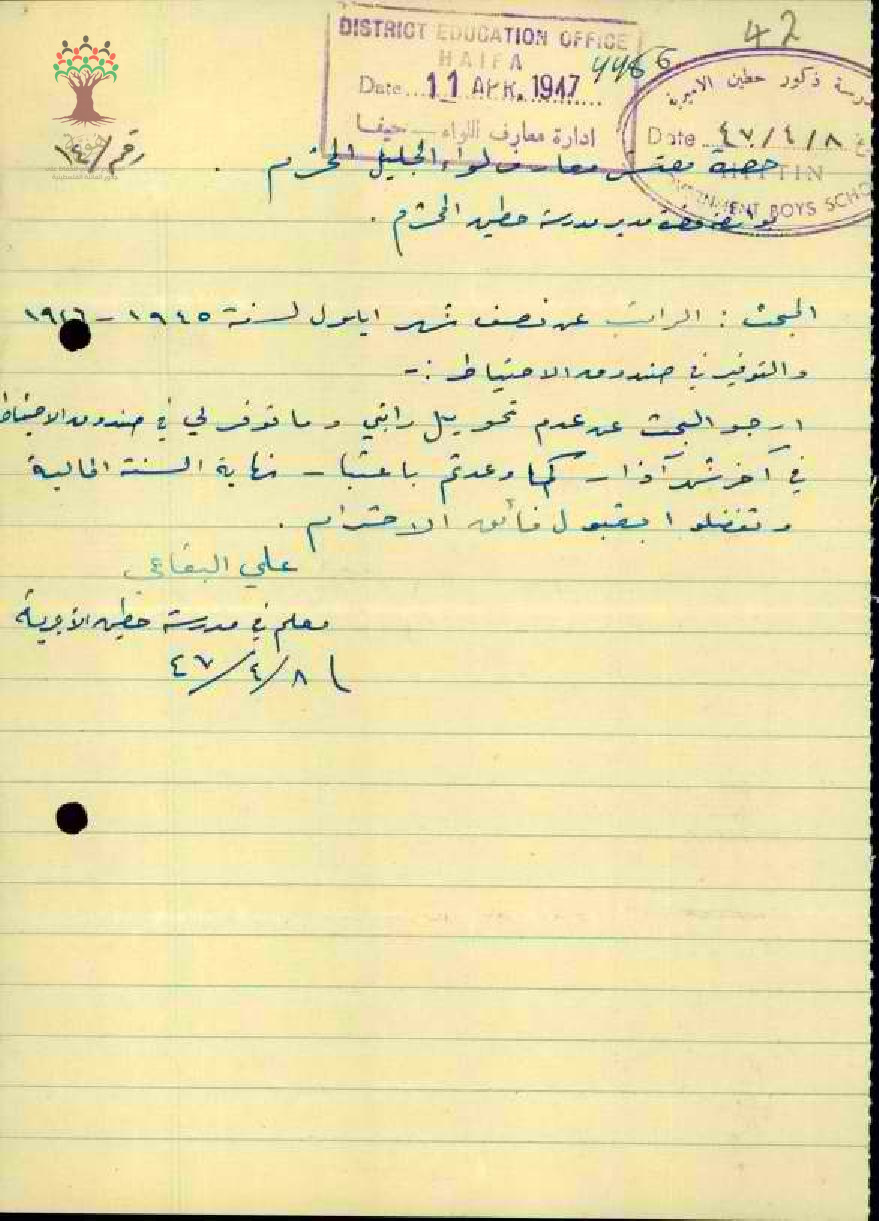 42
DISTRICT EDUCATION OFFICE
HAIFA
4466
Date... 11 APR. 1947
ادارة معارف اللواء — حيفا
مدرسة ذكور حطين الاميرية
Date ٤٧/٤/٨
HITTIN
GOVERNMENT BOYS SCHOOL
رقم/١٤
حضرة مفتش معارف لواء الجليل المحترم .
بواسطة حضرة مدير مدرسة حطين المحترم .
البحث : الراتب عن نصف شهر ايلول لسنة ١٩٤٥ - ١٩٤٦
والتوفير في صندوق الاحتياط :-
ارجو البحث عن عدم تحويل راتبي وما توفر لي في صندوق الاحتياط
في آخر شهر آذار كما وعدتم باعتبار نهاية السنة المالية
وتفضلوا بقبول فائق الاحترام .
علي البقاعي
معلم في مدرسة حطين الأميرية
٤٧/٤/٨